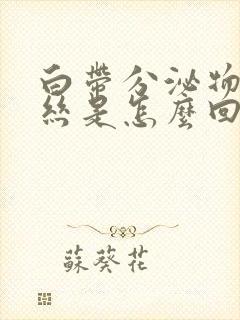 白帶分泌物
絲是怎麼回
蘇葵花